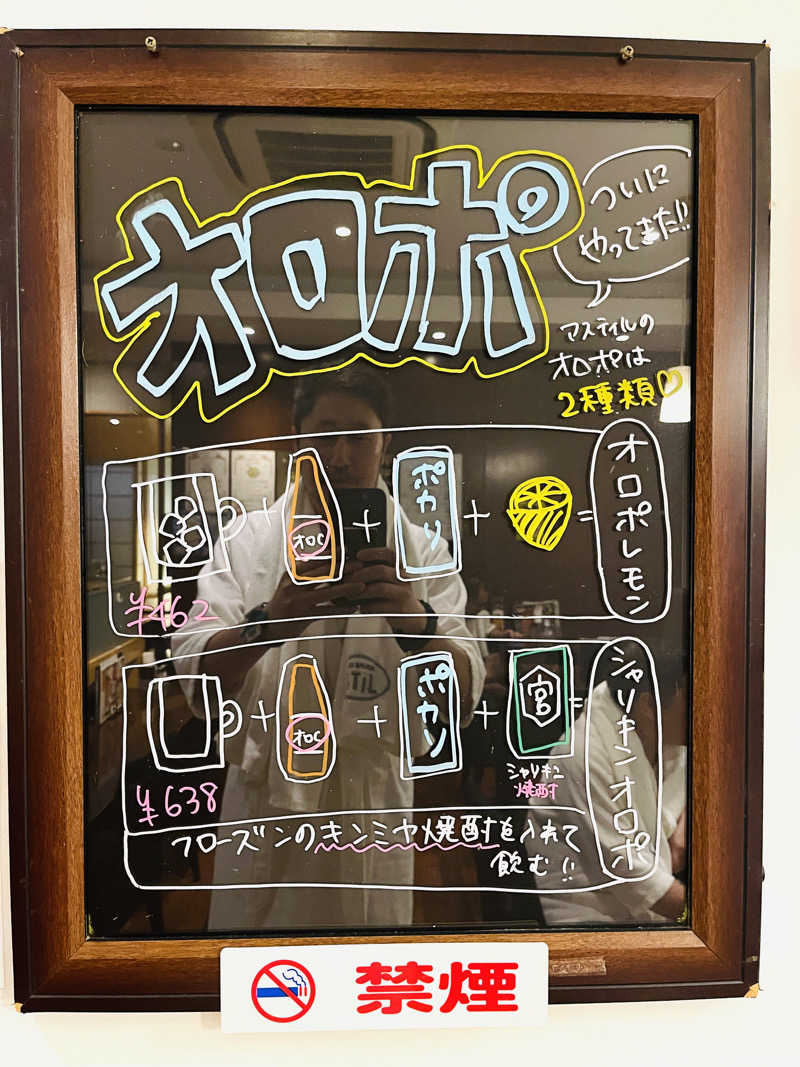 オロポ
ついに
やってきた!!
アスティルの
オロポは
2種類♡
+ オロC + ポカリ + =
オロポレモン
¥462
+ オロC + ポカリ + 宮 =
シャリキン
焼酎
シャリキンオロポ
¥638
フローズンのキンミヤ焼酎を入れて
飲む!!
TIL
禁煙